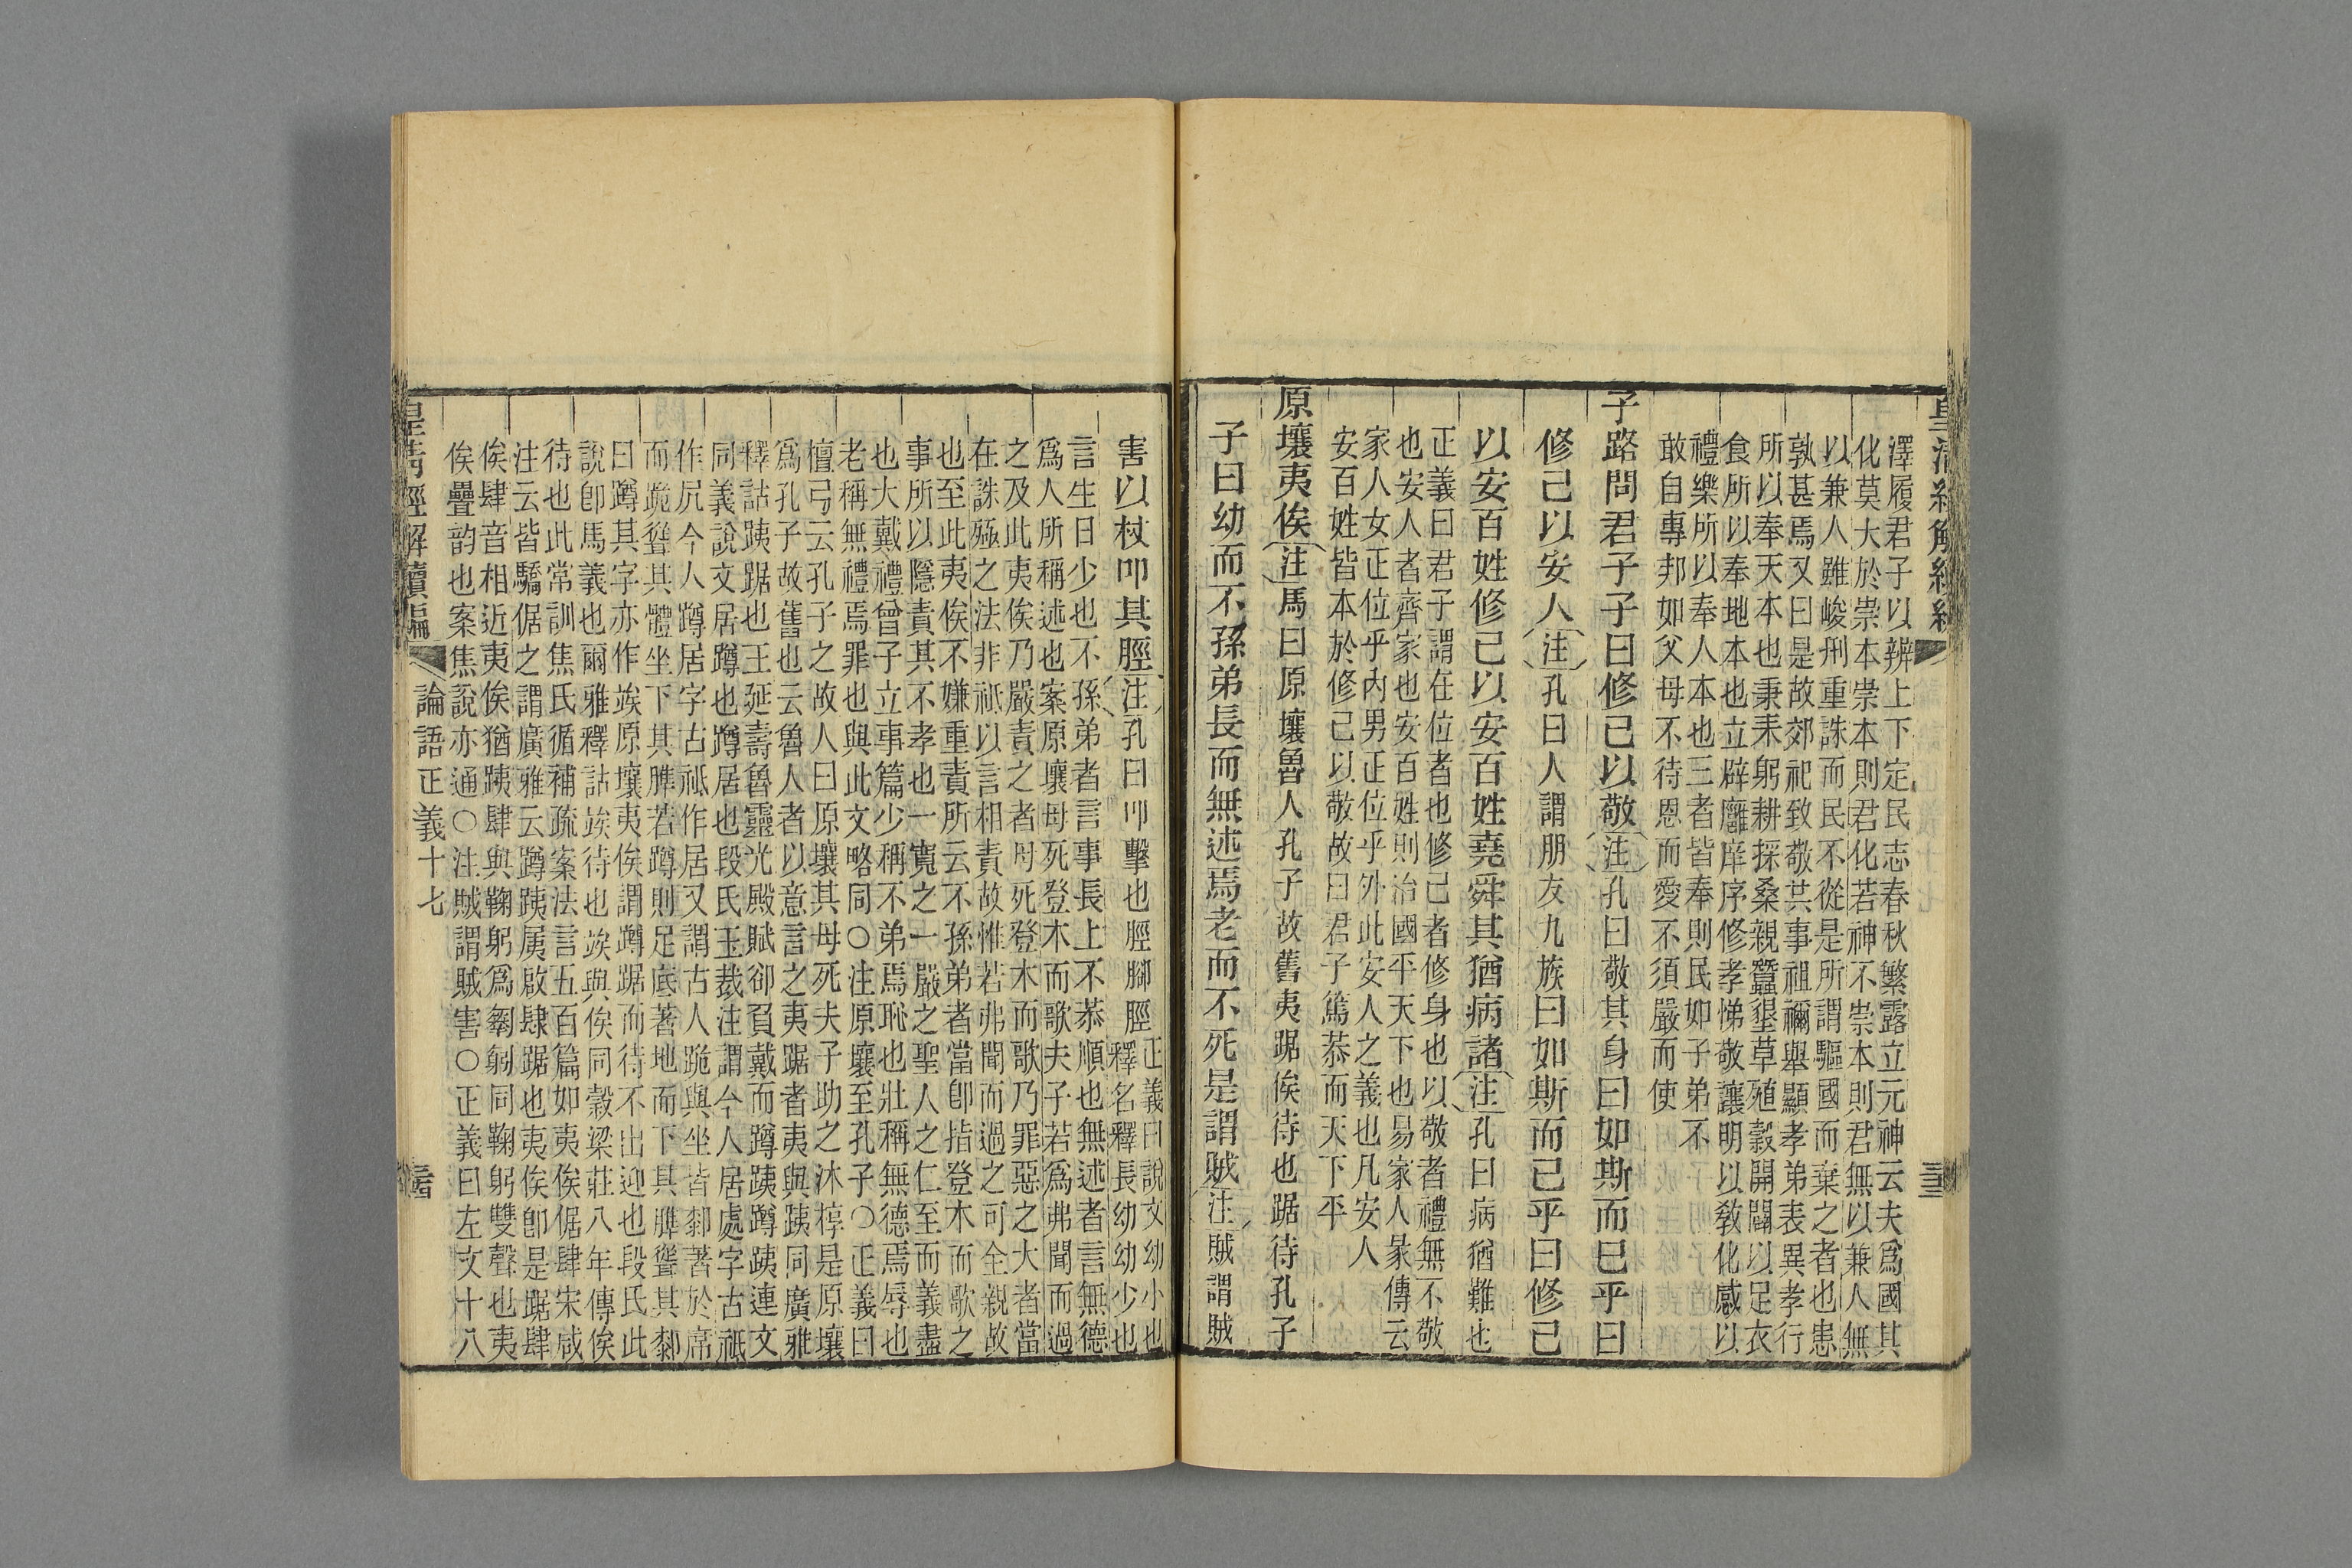 澤履君子以辨上下定民志春秋繁露立元神云夫爲國其
化莫大於崇本崇本則君化若神不崇本則君無以兼人無
以兼人雖峻刑重誅而民不從是所謂驅國而棄之者也患
孰甚焉又曰是故郊祀致敬共事祖禰舉顯孝弟表異孝行
所以奉天本也秉耒躬耕採桑親蠶墾草殖穀開闢以足衣
食所以奉地本也立辟廱庠序修孝悌敬讓明以敎化感以
禮樂所以奉人本也三者皆奉則民如子弟不
敢自專邦如父母不待恩而愛不須嚴而使
子路問君子子曰修己以敬注孔曰敬其身曰如斯而已乎曰
修己以安人注孔曰人謂朋友九族曰如斯而已乎曰修己
以安百姓修己以安百姓堯舜其猶病諸注孔曰病猶難也
正義曰君子謂在位者也修己者修身也以敬者禮無不敬
也安人者齊家也安百姓則治國平天下也易家人彖傳云
家人女正位乎內男正位乎外此安人之義也凡安人
安百姓皆本於修己以敬故曰君子篤恭而天下平
原壤夷俟注馬曰原壤魯人孔子故舊夷踞俟待也踞待孔子
子曰幼而不孫弟長而無述焉老而不死是謂賊注賊謂賊
害以杖叩其脛注孔曰叩擊也脛腳脛
正義曰說文幼小也
釋名釋長幼幼少也
言生日少也不孫弟者言事長上不恭順也無述者言無德
爲人所稱述也案原壤母死登木而歌夫子若爲弗聞而過
之及此夷俟乃嚴責之者母死登木而歌乃罪惡之大者當
在誅殛之法非祗以言相責故惟若弗聞而過之可全親故
也至此夷俟不嫌重責所云不孫弟者當卽指登木而歌之
事所以隱責其不孝也一寬之一嚴之聖人之仁至而義盡
也大戴禮曾子立事篇少稱不弟焉恥也壯稱無德焉辱也
老稱無禮焉罪也與此文略同○注原壤至孔子○正義曰
檀弓云孔子之故人曰原壤其母死夫子助之沐椁是原壤
爲孔子故舊也云魯人者以意言之夷踞者夷與跠同廣雅
釋詁跠踞也王延壽魯靈光殿賦卻負戴而蹲跠蹲跠連文
同義說文居蹲也蹲居也段氏玉裁注謂今人居處字古祗
作尻今人蹲居字古祗作居又謂古人跪與坐皆䣛著於席
而跪聳其體坐下其脽若蹲則足底著地而下其脽聳其䣛
曰蹲其字亦作竢原壤夷俟謂蹲踞而待不出迎也段氏此
說卽馬義也爾雅釋詁竢待也竢與俟同穀梁莊八年傳俟
待也此常訓焦氏循補疏案法言五百篇如夷俟倨肆宋咸
注云皆驕倨之謂廣雅云蹲跠㞐啟肆踞也夷俟卽是踞肆
俟肆音相近夷俟猶跠肆與鞠躬爲匑匔同鞠躬雙聲也夷
俟疊韵也案焦說亦通○注賊謂賊害○正義曰左文十八
皇淸經解續編
論語正義十七